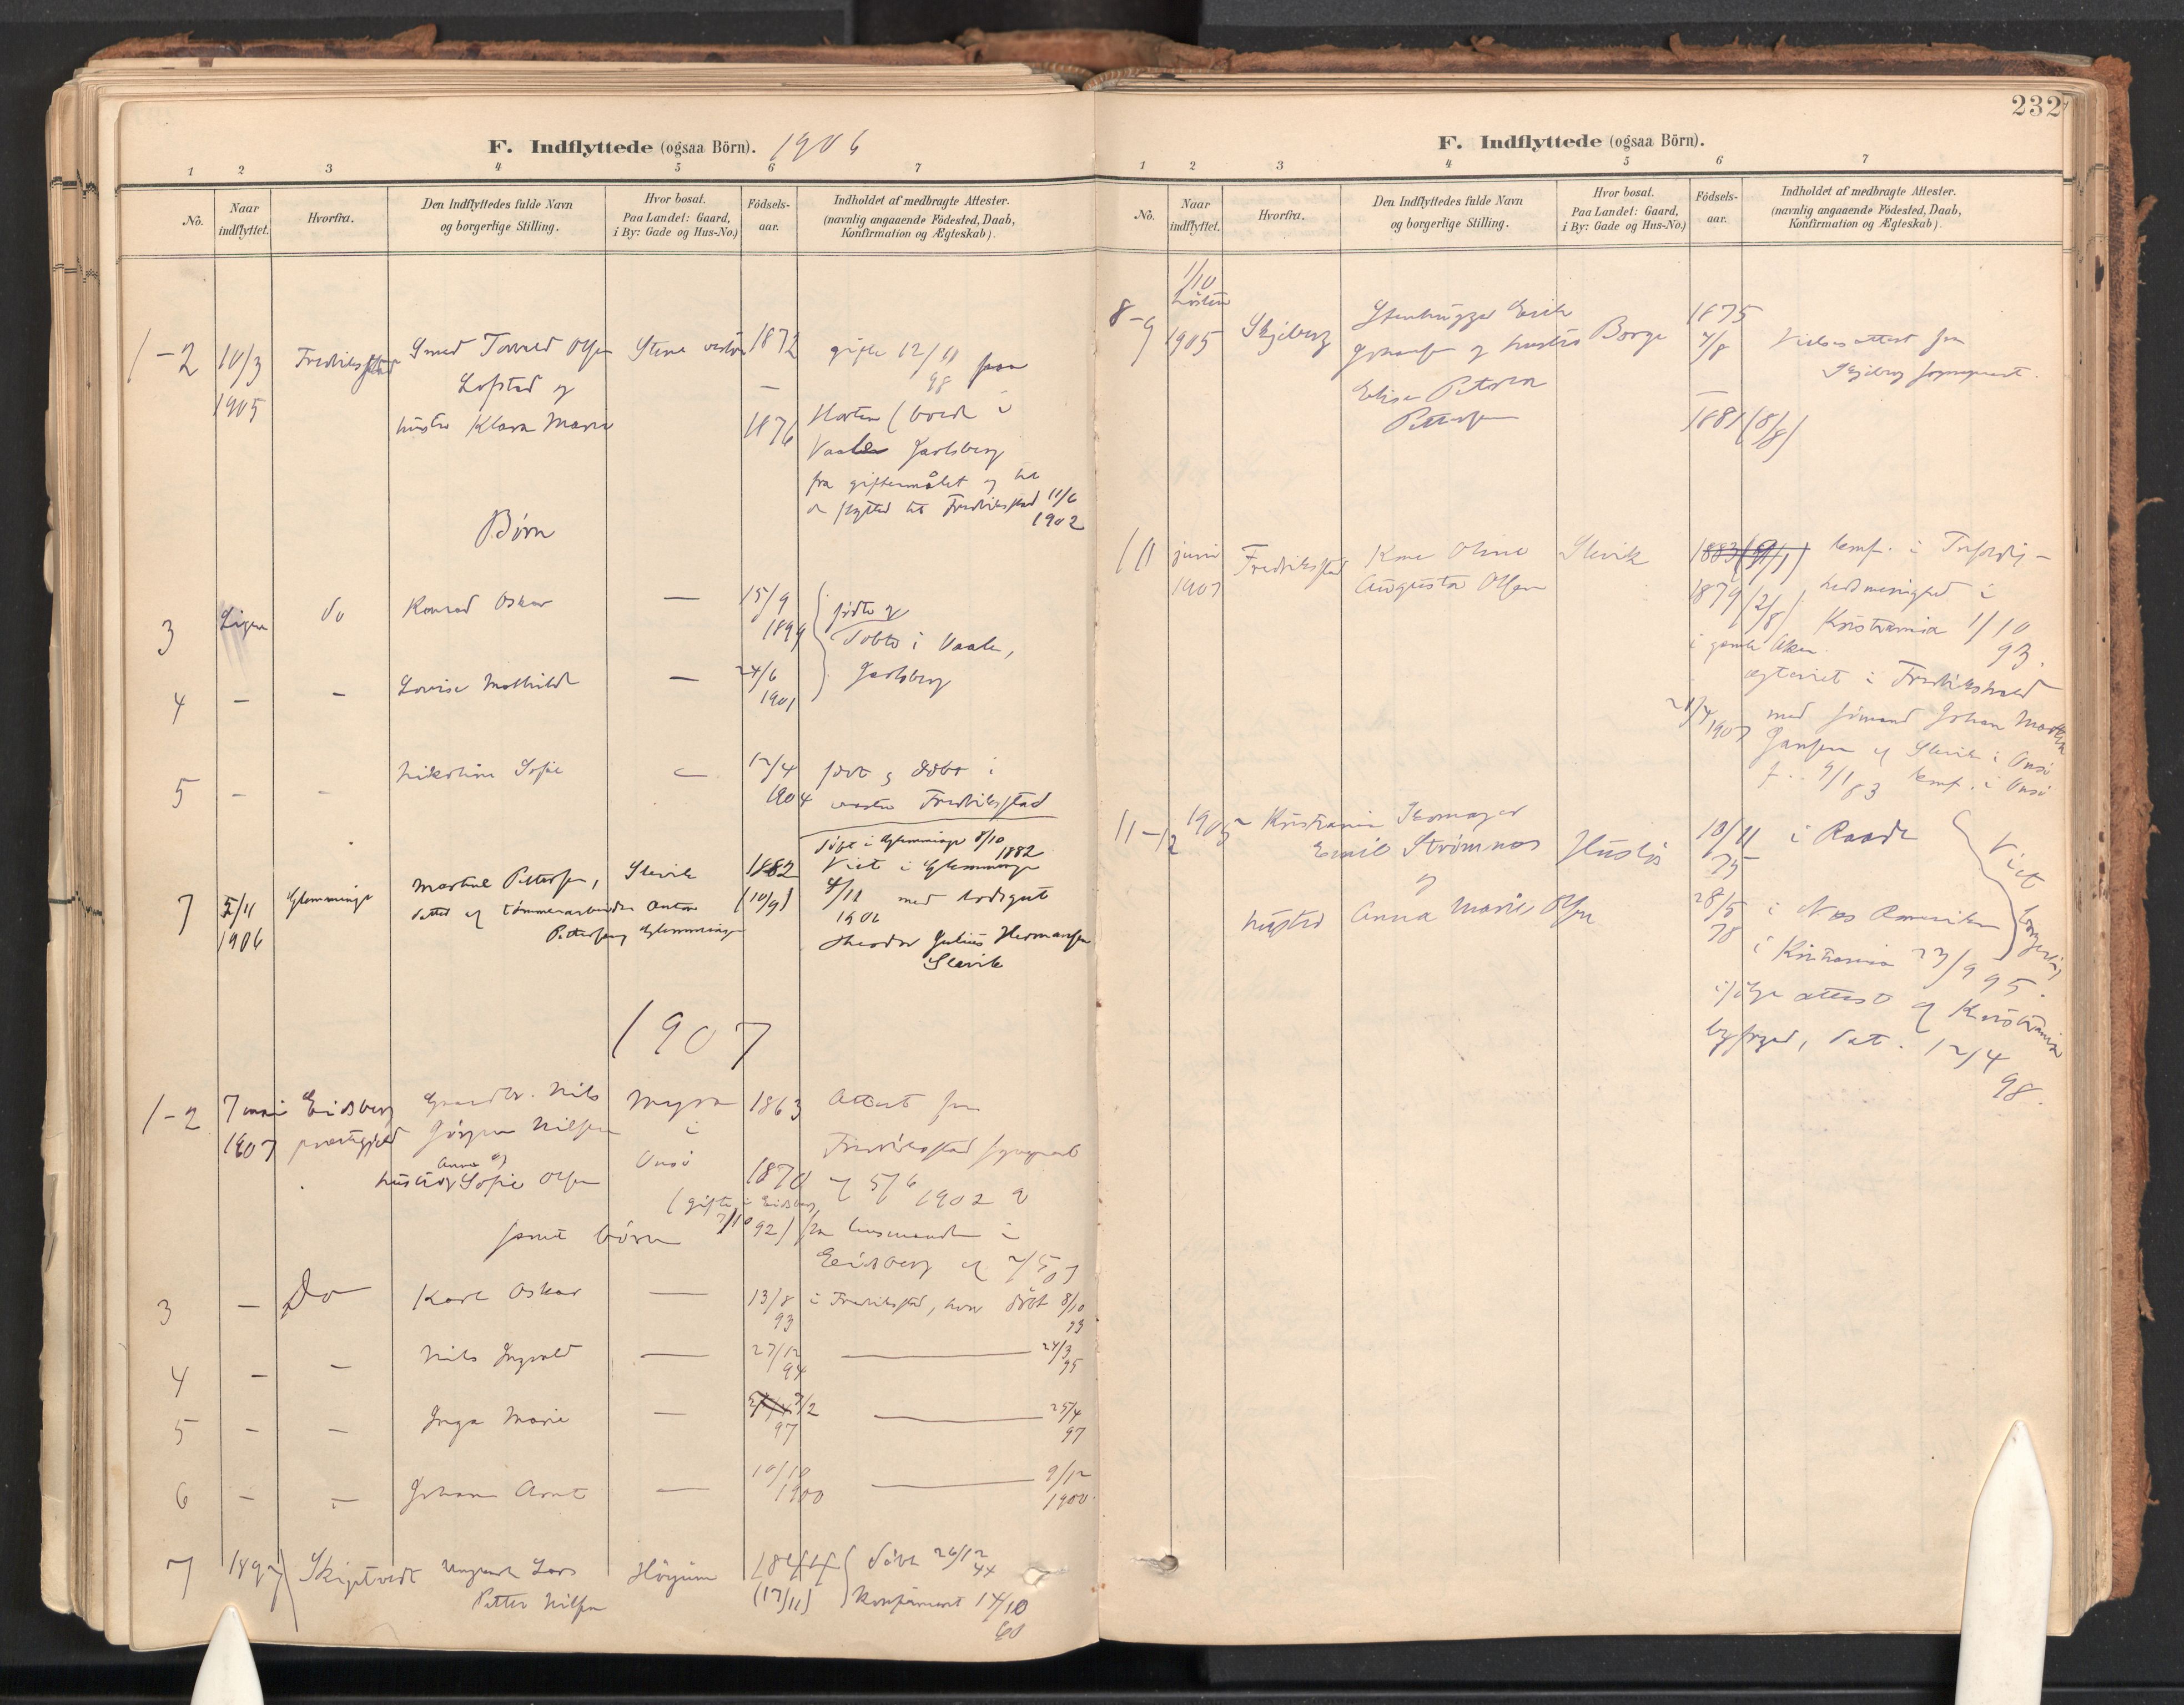 232
F. Indflyttede (ogsaa Börn). 1906
1 2 3 4 5 6 7
No.
Naar indflyttet.
Hvorfra.
Den Indflyttedes fulde Navn
og borgerlige Stilling.
Hvor bosat.
Paa Landet: Gaard,
i By: Gade og Hus-No.)
Födsels-
aar.
Indholdet af medbragte Attester.
(navnlig angaaende Födested, Daab,
Konfirmation og Ægteskab).
1-2 10/3 Fredriksstad Smed Torvald Olsen Stene 1872 gifte 12/11 98 paa
1905 Lofstad og —
hustru Klara Marie 1876 Horten (boede i
Vaale Jarlsberg
fra giftermålet og til
de flytted til Fredriksstad 11/6
1902
Børn
3 do Konrad Oskar — 15/9 1899 fødte og
døbte i Vaale,
4 — — Lovise Mathilde — 24/6 1901 Jarlsberg
5 — — Nikoline Sofie — 12/4 1904 født og døbt i
Fredriksstad
Døbt i Glemminge 8/10
1882
7 5/11 Glemminge Martine Pettersen, Slevik 1882 Viet i Glemminge
1906 datter af tømmerarbeider Anton (10/9) 4/11 1906 med
Pettersen, Glemminge
Theodor Julius Hermansen
Slevik
1907
1-2 7 mai Eidsberg Nils Myra 1863 Attest fra
1907 præstegjeld Jörgen Nilsen i Fredriksstad
Anna og
hustru Sofie Olsen Onsö 1870 af 5/6 1902 &
(gifte i Eidsberg
7/10 92)
samt börn fra i
Eidsberg af 2/5 07
3 — Do Karl Oskar — 13/8 93 i Fredriksstad, hvor döbt 8/10 93
4 — — Nils Ingvald — 27/12 94 — 24/3 95
5 — — Inga Marie — 2/2 97 — 25/4 97
6 — — Johan Arnt — 10/10 1900 — 9/12 1900
7 1897 Skiptvedt Ungkarl Lars Höyum 1844 Döbt 26/12 44
Petter Nilsen (17/11) Konfirmeret 14/10
60
F. Indflyttede (ogsaa Börn).
1 2 3 4 5 6 7
No.
Naar indflyttet.
Hvorfra.
Den Indflyttedes fulde Navn
og borgerlige Stilling.
Hvor bosat.
Paa Landet: Gaard,
i By: Gade og Hus-No.)
Födsels-
aar.
Indholdet af medbragte Attester.
(navnlig angaaende Födested, Daab,
Konfirmation og Ægteskab).
1/10
8-9 1905 Skjeberg Stenhugger Erik 1875
Johansen og hustru Borge 4/8 Vielsesattest fra
Elise Petrea — Skjeberg sogneprest.
Pettersen 1881 (8/8)
10 juni Fredriksstad Kone Oline Slevik 1883 (9/1) konf. i
1907 Augusta Olsen 1879 (2/8) menighed i
Kristiania 1/10
i gamle Aker 93.
ægteviet i Fredrikshald
21/4 1907 med sømand Johan Martin
Jansen af Slevik i Onsö
f. 9/1 83 konf. i Onsö
11-12 Kristiania Skomager
Emil Strömnes Huslös 10/11 75 i Raade
og
hustru Anna Marie Olsen 28/5 78 i Nes Romerike
Viet borgerlig
i Kristiania 23/9 95.
ifølge attest af Kristiania
byfoged, dat. 12/4
98.